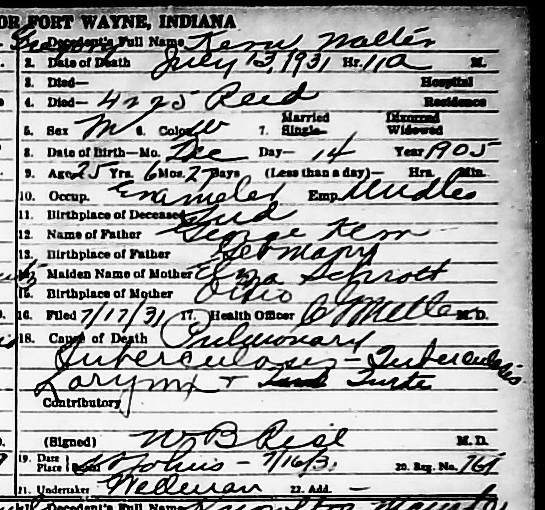 OR FORT WAYNE, INDIANA
Decedent's Full Name Kern Walter
2. Date of Death July 13, 1931 Hr. 11 a M.
3. Died— Hospital
4. Died— 4225 Reed Residence
5. Sex M 6. Color W 7. Married Single— Divorced Widowed
8. Date of Birth—Mo. Dec Day— 14 Year 1905
9. Age 25 Yrs. 6 Mos. 27 Days (Less than a day)— Hrs. Min.
10. Occup. Enameler Emp.
11. Birthplace of Deceased Ind
12. Name of Father George Kern
13. Birthplace of Father Germany
Maiden Name of Mother Schrott
15. Birthplace of Mother Ohio
16. Filed 7/17/31 17. Health Officer M.D.
18. Cause of Death Pulmonary
Tuberculosis — Tuberculosis
Larynx +
Contributory
(Signed) W B Rice M.D.
19. Date Place Burial St Johns — 7/16/31 20. Reg. No. 761
21. Undertaker 22. Add. —
Decedent's Full Name